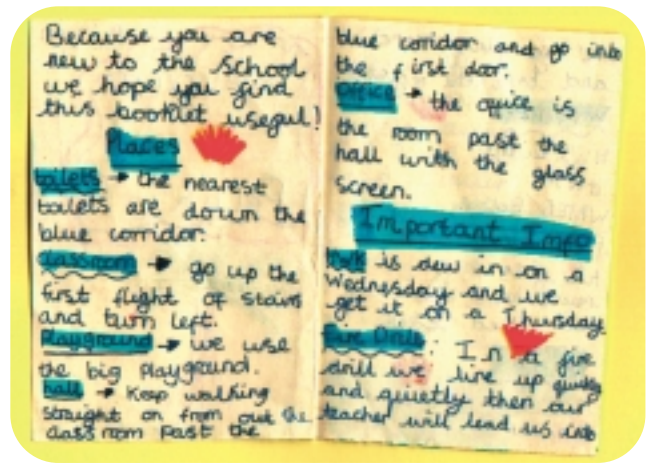 Because you are
new to the school
we hope you find
this booklet useful!
Places
toilets → the nearest
toilets are down the
blue corridor.
classroom → go up the
first flight of stairs
and turn left.
Playground → we use
the big playground.
hall → Keep walking
straight on from out the
classroom past the
blue corridor and go into
the first door.
Office → the office is
the room past the
hall with the glass
screen.
Important Info
is dew in on a
Wednesday and we
get it on a Thursday
Fire Drill: In a fire
drill we line up quickly
and quietly then our
teacher will lead us into